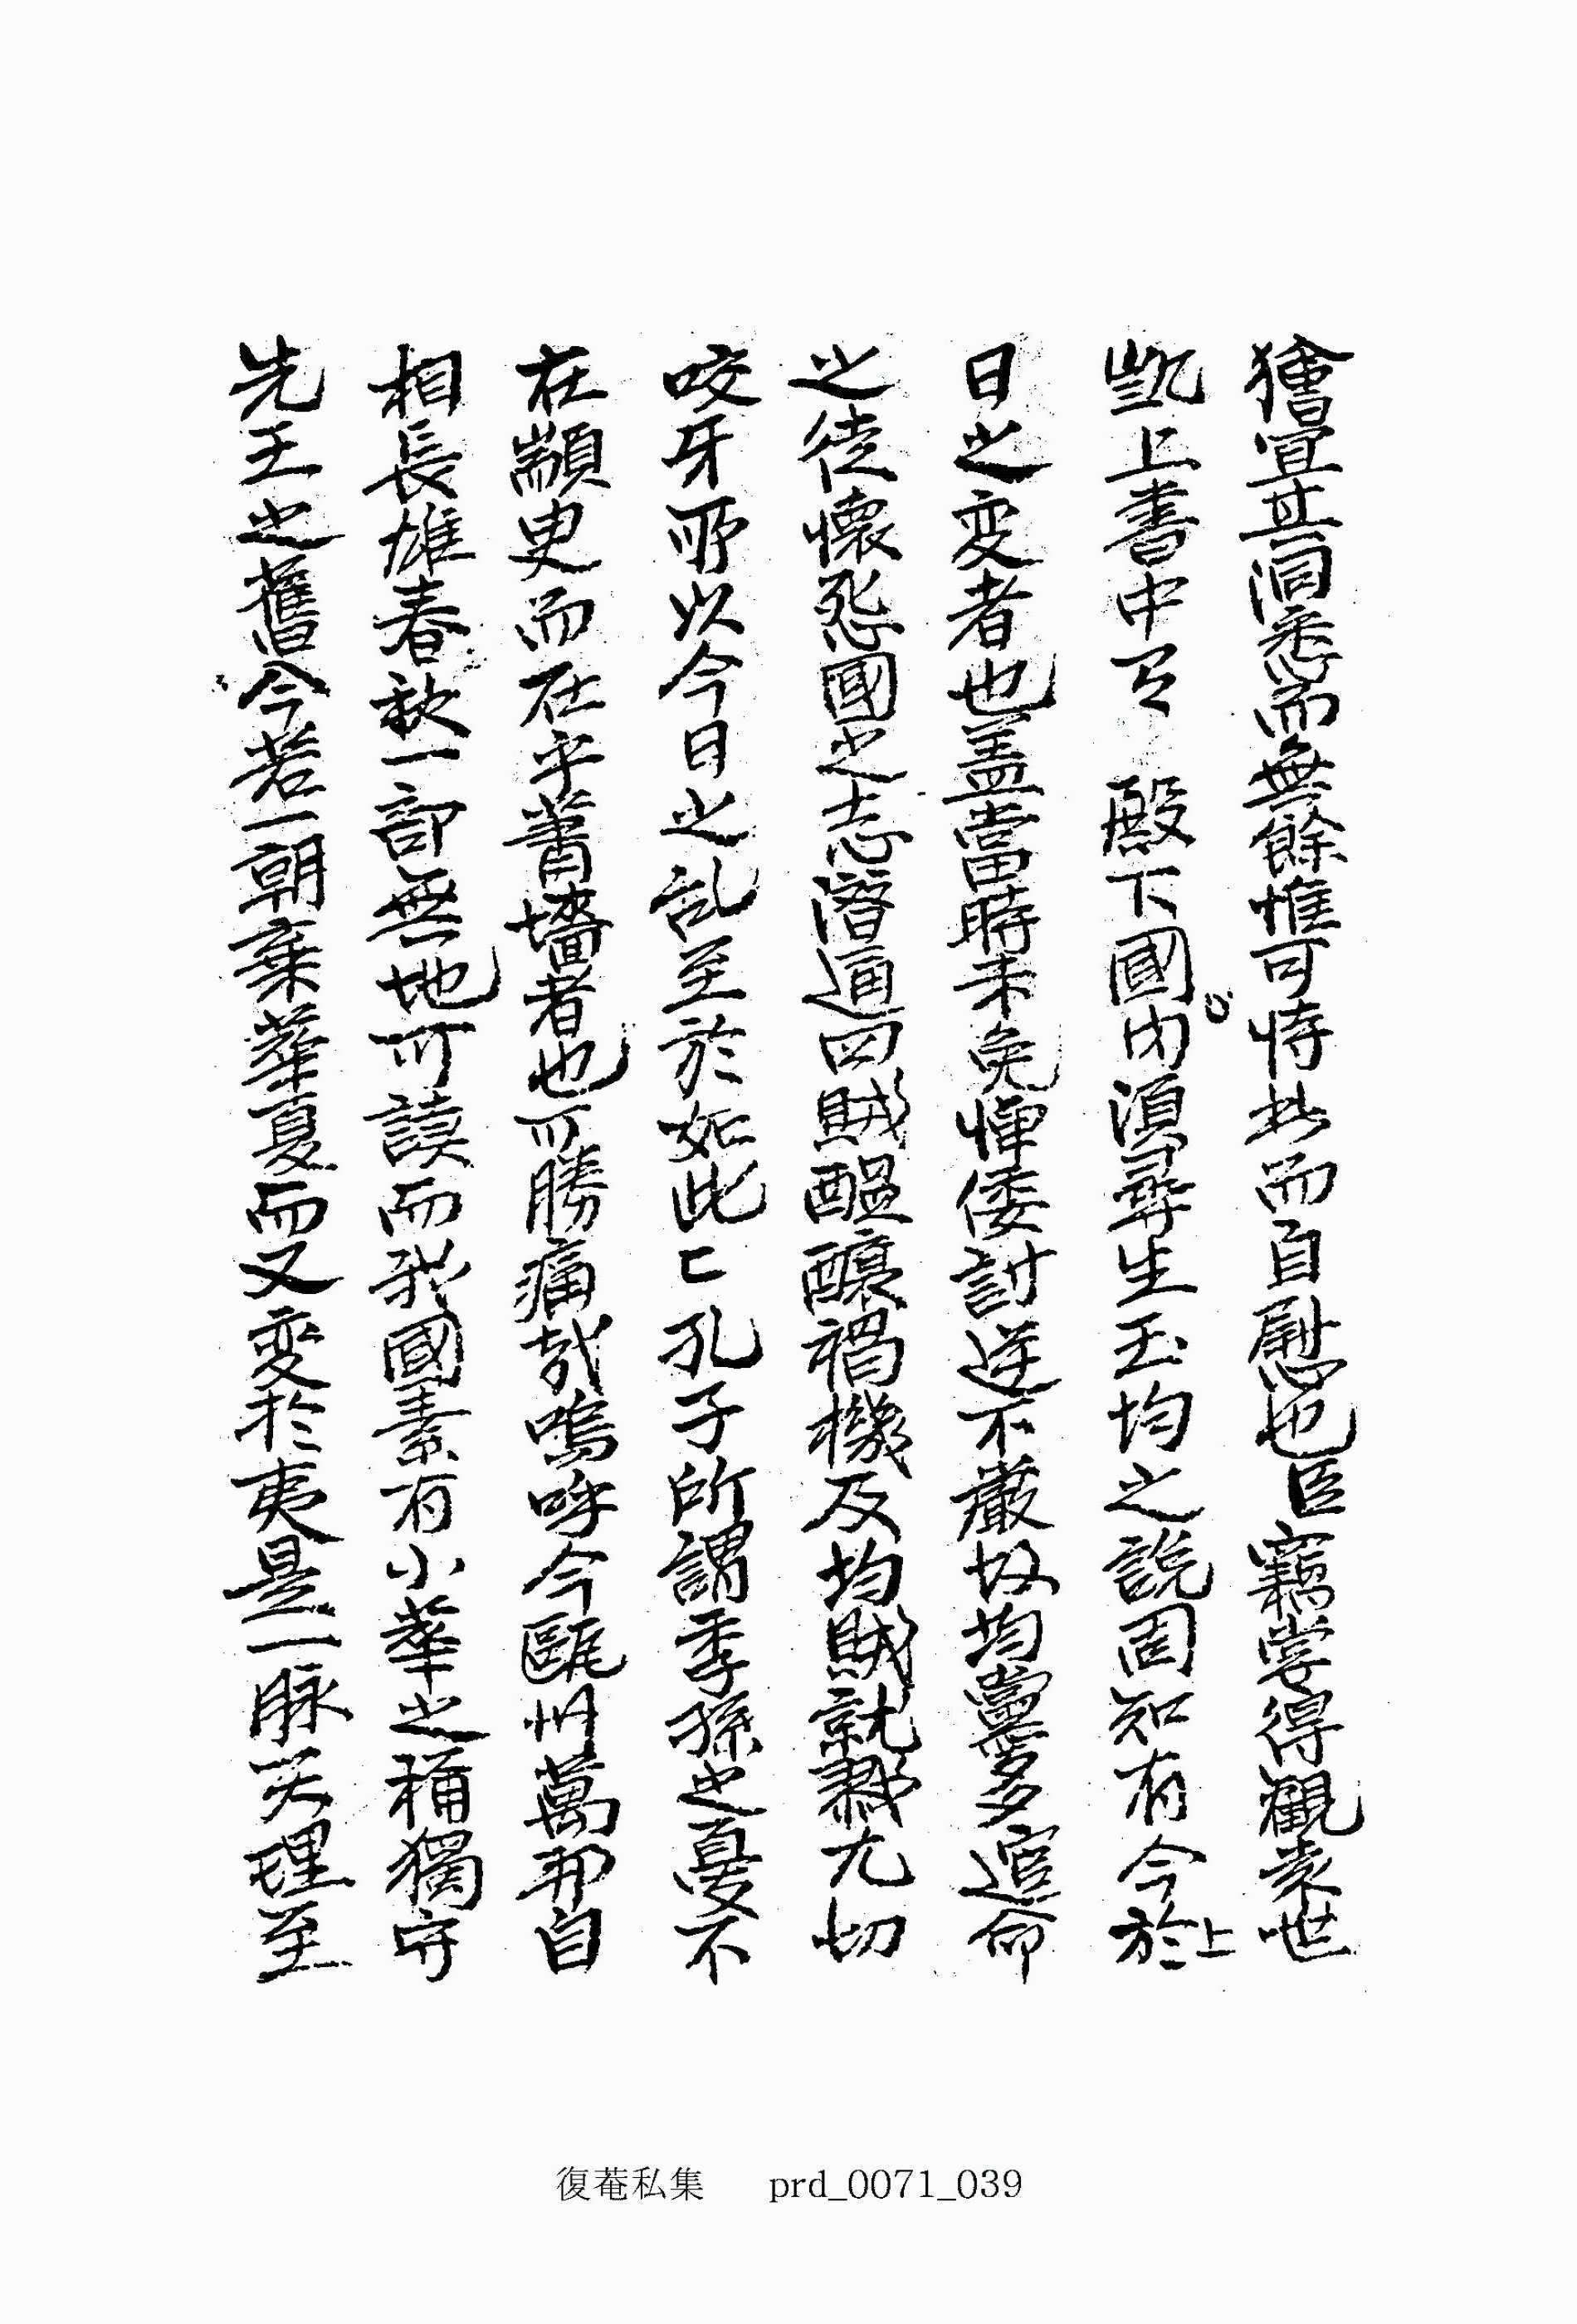 獪宜其洞悉而無餘惟可恃此而自慰也臣竊嘗得觀袁世
凱上書中有 殿下國內須尋生玉均之說固知有今於上
日之变者也盖當時未免憚倭討逆不嚴故均黨多逭命
之徒懷怨國之志潛通四賊醞釀禍機及均賊就戮尤切
咬牙所以今日之乱至於如此匕孔子所謂季孫之憂不
在顓臾而在乎蕭墻者也可勝痛哉嗚呼今甌州萬邦自
相長雄春秋一部無地可讀而我國素有小華之稱獨守
先王之舊今若一朝棄華夏而又变於夷是一脉天理至
復菴私集 prd_0071_039